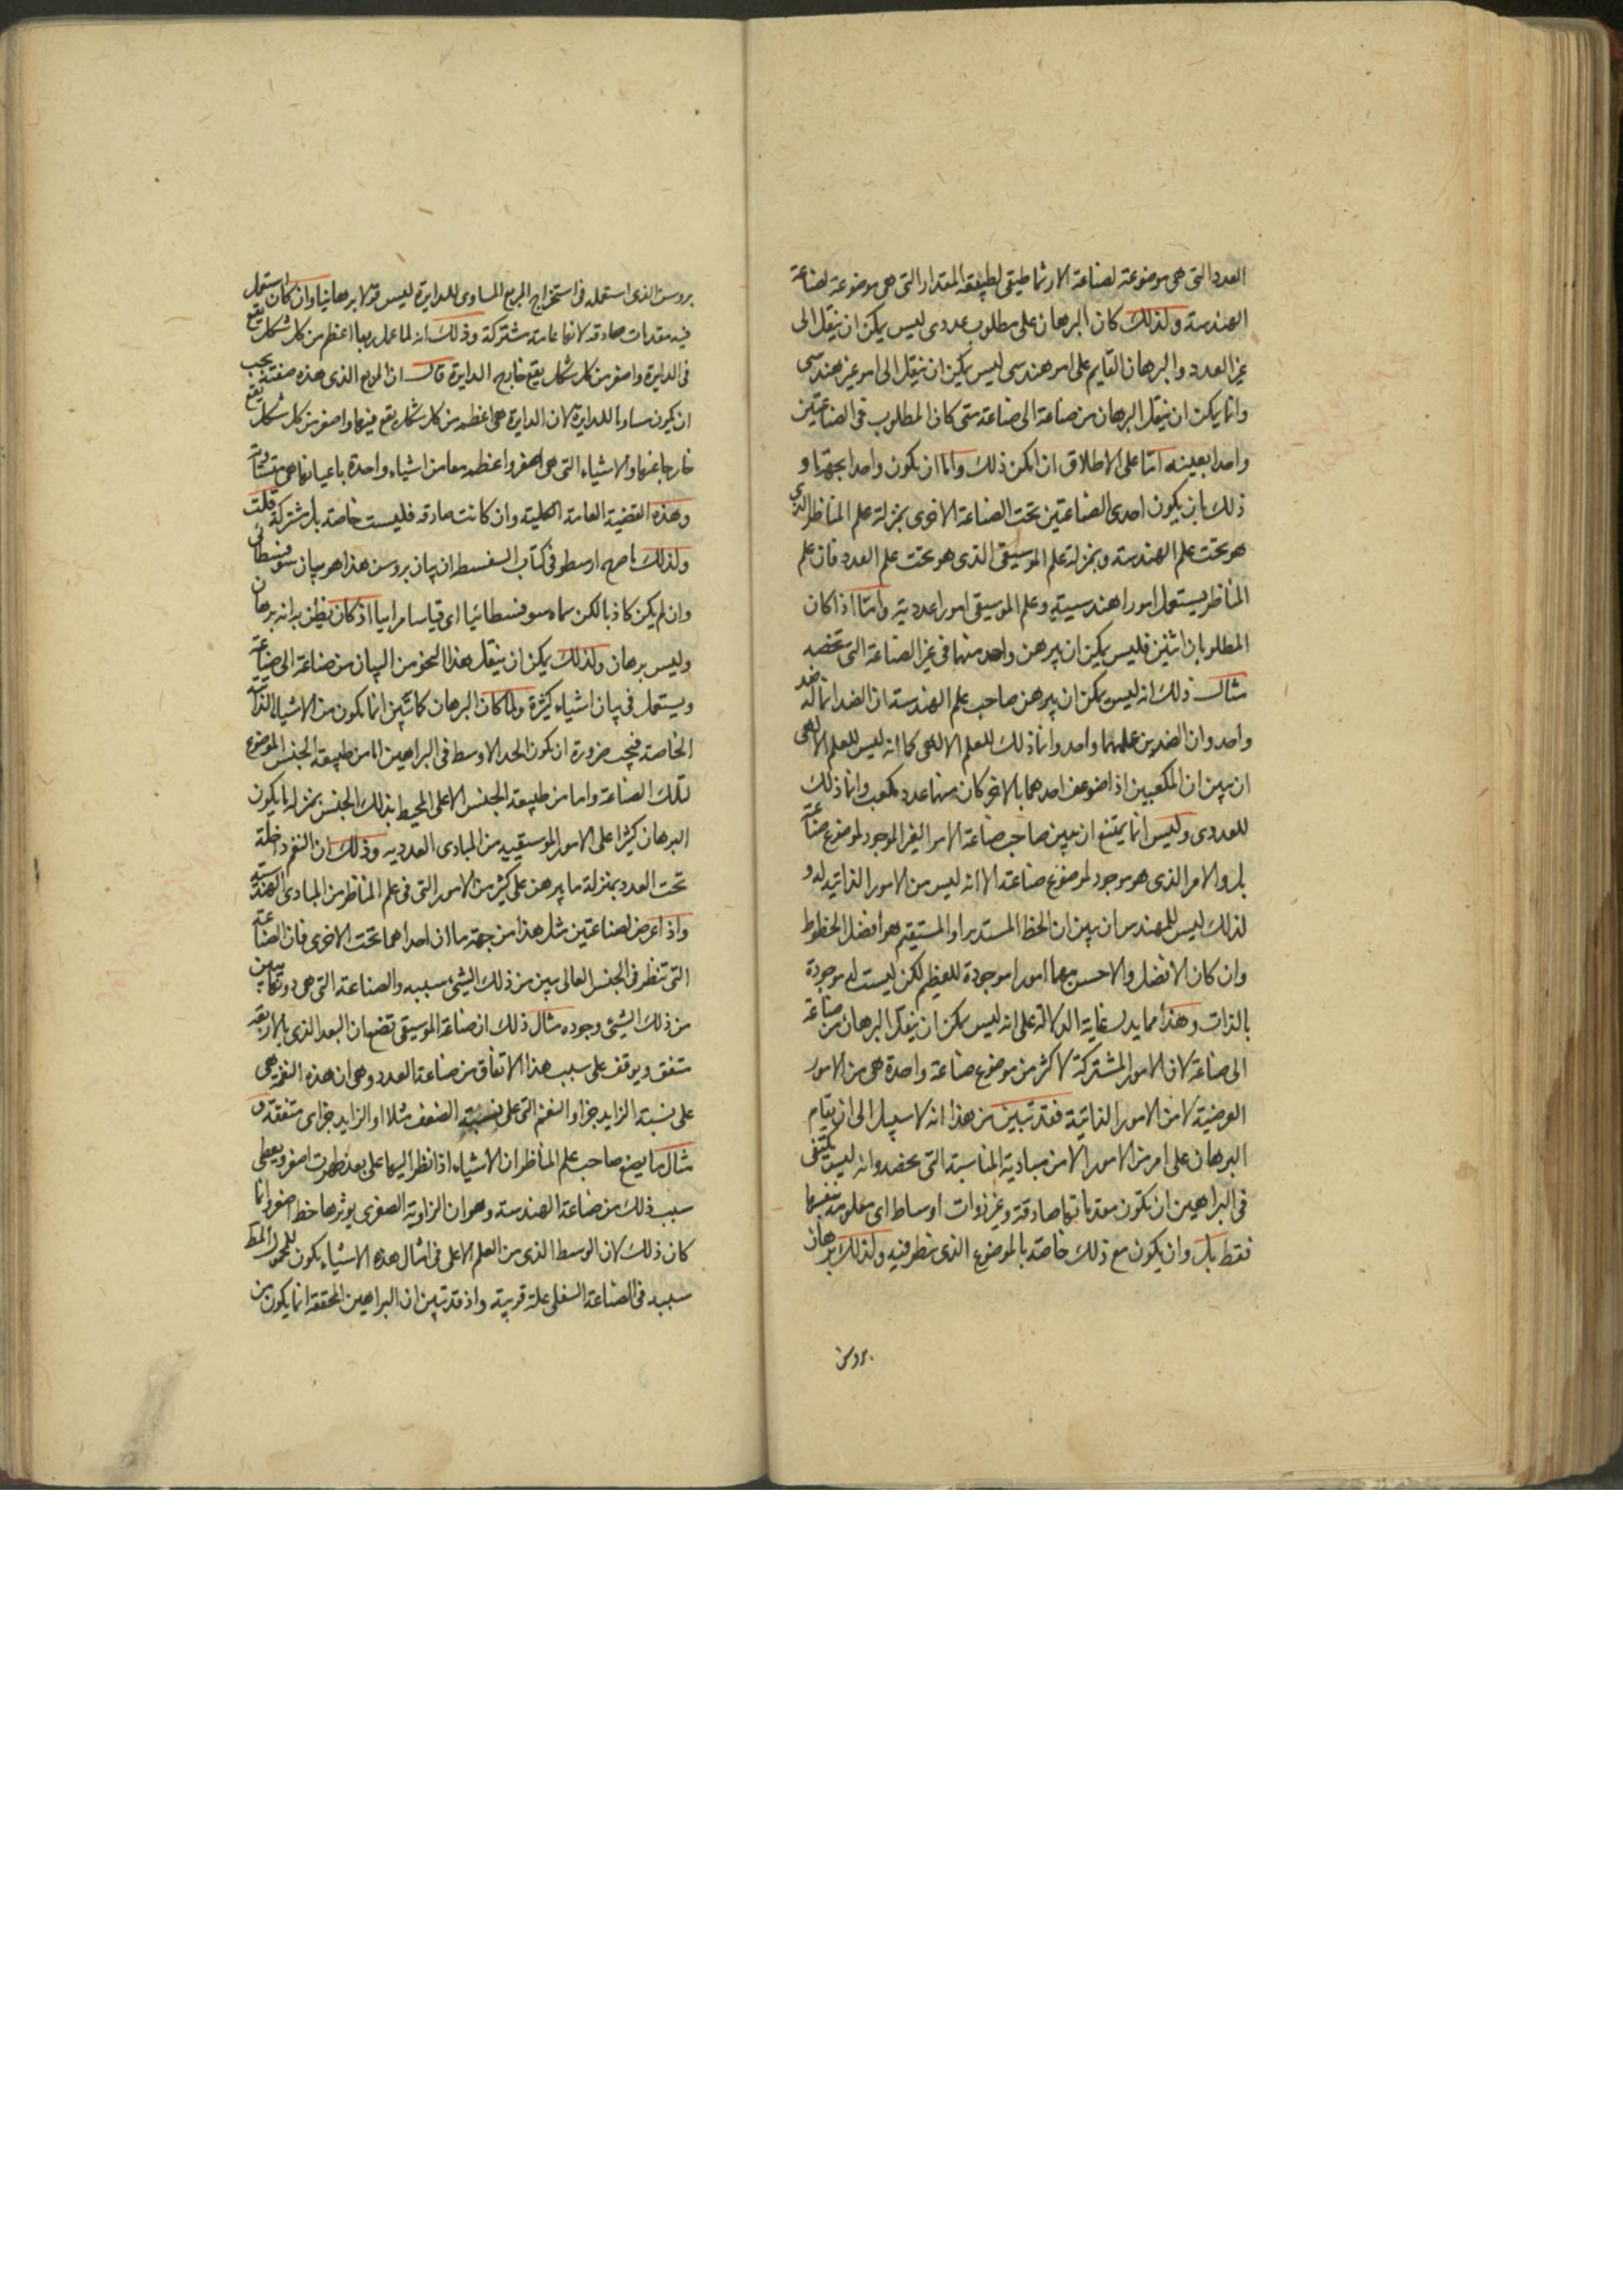 العدد التى هى موضوعة لصناعة الارثماطيقى لطبيعة المقدار التى هى موضوعة لصناعة
الهندسة ولذلك كان البرهان على مطلوب عددى ليس يمكن ان ينقل الى
غير العدد والبرهان القايم على امر هندسى ليس يمكن ان ينقل الى امر غير هندسى
وانما يمكن ان ينقل البرهان من صناعة الى صناعة متى كان المطلوب فى الصناعتين
واحدا بعينه اما على الاطلاق ان امكن ذلك واما ان يكون واحدا بجهة ما و
ذلك بان يكون احدى الصناعتين تحت الصناعة الاخرى بمنزلة علم المناظر الذى
هو تحت علم الهندسة وبمنزلة علم الموسيقى الذى هو تحت علم العدد فان علم
المناظر يستعمل امورا هندسية وعلم الموسيقى امورا عددية واما اذا كان
المطلوبان اثنين فليس يمكن ان يبرهن واحد منهما فى غير الصناعة التى تخصه
مثال ذلك انه ليس يمكن ان يبرهن صاحب علم الهندسة ان الضد انما له ضد
واحد وان الضدين علمهما واحد وانما ذلك للعلم الالاهى كما انه ليس للعلم الالاهى
ان يبين ان المكعبين اذا ضوعف احدهما بالاخر كان منهما عدد مكعب وانما ذلك
للعددى وليس انما يمتنع ان يبين صاحب صناعة الامر الغير الموجود لموضوع صناعته
بل والامر الذى هو موجود لموضوع صناعته الا انه ليس من الامور الذاتية له و
لذلك ليس للمهندس ان يبين ان الخط المستدير او المستقيم هو افضل الخطوط
وان كان الافضل والاحسن مهما امورا موجودة للعظم لكن ليست له موجودة
بالذات وهذا مما يدل غاية الدلالة على انه ليس يمكن ان ينقل البرهان من صناعة
الى صناعة لان الامور المشتركة لاكثر من موضوع صناعة واحدة هى من الامور
العرضية لا من الامور الذاتية فقد تبين من هذا انه لا سبيل الى ان يقام
البرهان على امر من الامور الا من مباديه المناسبة التى تخصه وانه ليس يكتفى
فى البراهين ان تكون مقدماتها صادقة وغير ذوات اوساط اى معلومة بنفسها
فقط بل وان يكون مع ذلك خاصة بالموضوع الذى ينظر فيه ولذلك برهان
بروسن
بروسن الذى استعمله فى استخراج المربع المساوى للدايرة ليس قولا برهانيا وان كان استعمل
فيه مقدمات صادقه لانها عامة مشتركة وذلك انه لما عمل مربعا اعظم من كل شكل يقع
فى الدايرة واصغر من كل شكل يقع خارج الدايرة قال ان المربع الذى هذه صفته يجب
ان يكون مساويا للدايرة لان الدايرة هى اعظم من كل شكل يقع فيها واصغر من كل شكل يقع
خارجا عنها والاشياء التى هى اصغر واعظم معا من اشياء واحدة باعيانها هى متساوية
وهذه القضية العامة الكلية وان كانت صادقه فليست خاصة بل مشتركة قلت
ولذلك ما صرح ارسطو فى كتاب السفسطه ان بيان بروسن هذا هو بيان سوفسطائى
وان لم يكن كاذبا لكن سماه سوفسطائيا اى قياسا مرائيا اذ كان يظن به انه برهان
وليس برهان ولذلك يمكن ان ينقل هذا النحو من البيان من صناعة الى صناعة
ويستعمل فى بيان اشياء كثيرة ولما كان البرهان كما تبين انما يكون من الاشياء الذاتية
الخاصة فيجب ضرورة ان يكون الحد الاوسط فى البراهين اما من طبيعة الجنس الموضوع
لتلك الصناعة واما من طبيعة الجنس الاعلى المحيط بذلك الجنس بمنزلة ما يكون
البرهان كثيرا على الامور الموسيقية من المبادى العددية وذلك ان النغم داخلة
تحت العدد بمنزلة ما يبرهن على كثير من الامور التى فى علم المناظر من المبادى الهندسية
واذا عرض لصناعتين مثل هذا من جهة ما ان احداهما تحت الاخرى فان الصناعة
التى تنظر فى الجنس العالى يبين من ذلك الشئ سببه والصناعة التى هى دونها يبين
من ذلك الشئ وجوده مثال ذلك ان صناعة الموسيقى تضع ان البعد الذى بالاربعة
متفق ويوقف على سبب هذا الاتفاق من صناعة العدد وهى ان هذه النغم هى
على نسبة الزايد جزاء والنغم التى على نسبة الضعف مثلا او الزايد جزاى متفقة و
مثال ما يضع صاحب علم المناظر ان الاشياء اذا نظر اليها على بعد ظهرت اصغر ويعطى
سبب ذلك من صناعة الهندسة وهو ان الزاوية الصغرى يوترها خط اصغر وانما
كان ذلك لان الوسط الذى من العلم الاعلى فى امثال هذه الاشياء يكون للمحمول المط
سببه فى الصناعة السفلى علة قريبة واذ قد تبين ان البراهين المحققة انما يكون من